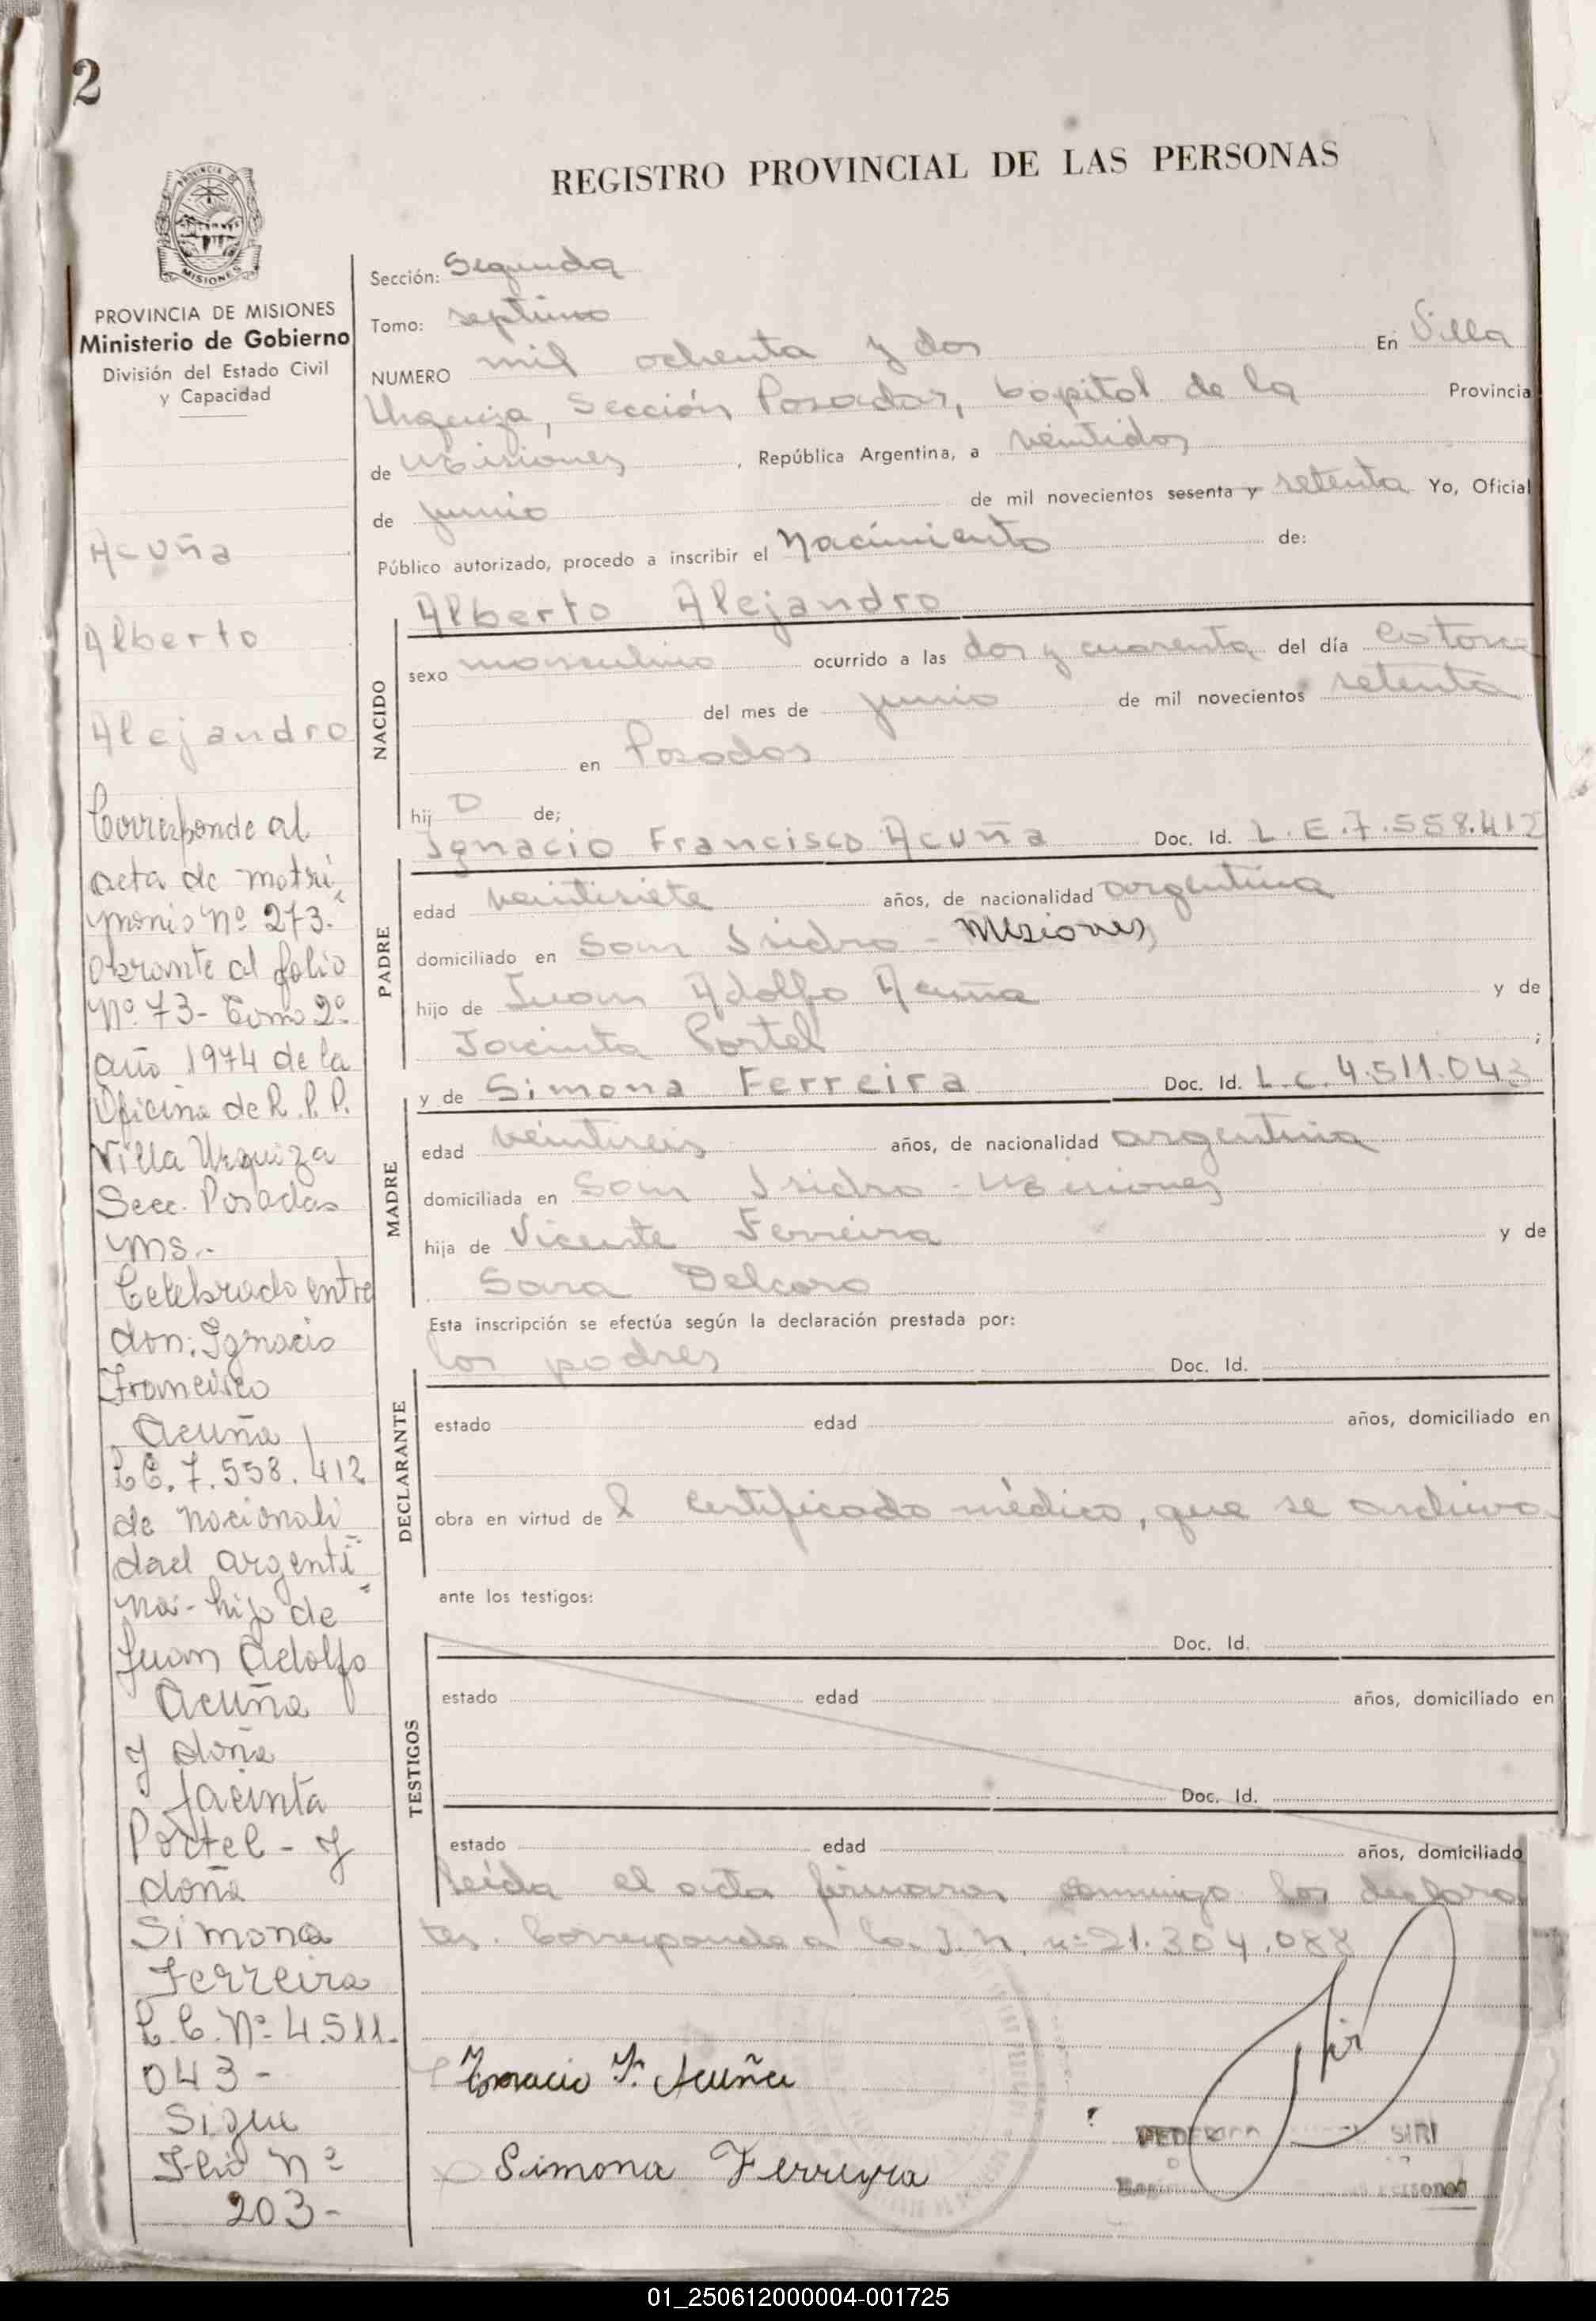 2
REGISTRO PROVINCIAL DE LAS PERSONAS
MISIONES
PROVINCIA DE MISIONES
Ministerio de Gobierno
División del Estado Civil
y Capacidad
Acuña
Alberto
Alejandro
Corresponde al
acta de matri
monio Nº 273.
obrante al folio
Nº 73- Tomo 2º
año 1974 de la
Oficina de R. P. P.
Villa Urquiza
Secc. Posadas
Celebrado entre
don: Ignacio
Francisco
Acuña
7.558.412
de nacionali
dad argenti
na- hijo de
Juan Adolfo
Acuña
y doña
Jacinta
Portel - y
doña
Simona
Ferreira
Nº 4.511.
043-
Sigue
Nº
203-
Sección: Segunda
Tomo: septimo
NUMERO mil ochenta y dos En Villa
Urquiza, Sección Posadas, Capital de la Provincia
de Misiones, República Argentina, a veintidos
de junio de mil novecientos sesenta y setenta Yo, Oficial
Público autorizado, procedo a inscribir el Nacimiento de:
NACIDO
Alberto Alejandro
sexo masculino ocurrido a las dos y cuarenta del día catorce
del mes de junio de mil novecientos setenta
en Posadas
hij o de;
PADRE
Ignacio Francisco Acuña Doc. Id. L. E. 7.558.412
edad veintisiete años, de nacionalidad argentina
domiciliado en San Isidro - Misiones
hijo de Juan Adolfo Acuña y de
Jacinta Portel ;
MADRE
y de Simona Ferreira Doc. Id. L.C. 4.511.043
edad veintiseis años, de nacionalidad argentina
domiciliada en San Isidro - Misiones
hija de Vicente Ferreira y de
Sara Delcaro
Esta inscripción se efectúa según la declaración prestada por:
DECLARANTE
los padres Doc. Id.
estado edad años, domiciliado en
obra en virtud de l certificado médico, que se archiva
ante los testigos:
TESTIGOS
Doc. Id.
estado edad años, domiciliado en
Doc. Id.
estado edad años, domiciliado
Leída el acta firmaron conmigo los declaran
tes. Corresponde a la I. N. nº 21.304.088
Ignacio F. Acuña
Simona Ferreyra
SIRI
01_250612000004-001725